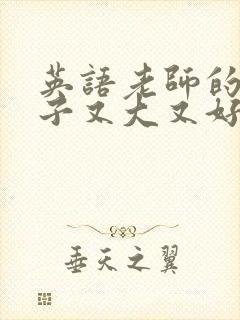 英語老師的
子又大又好
垂天之翼